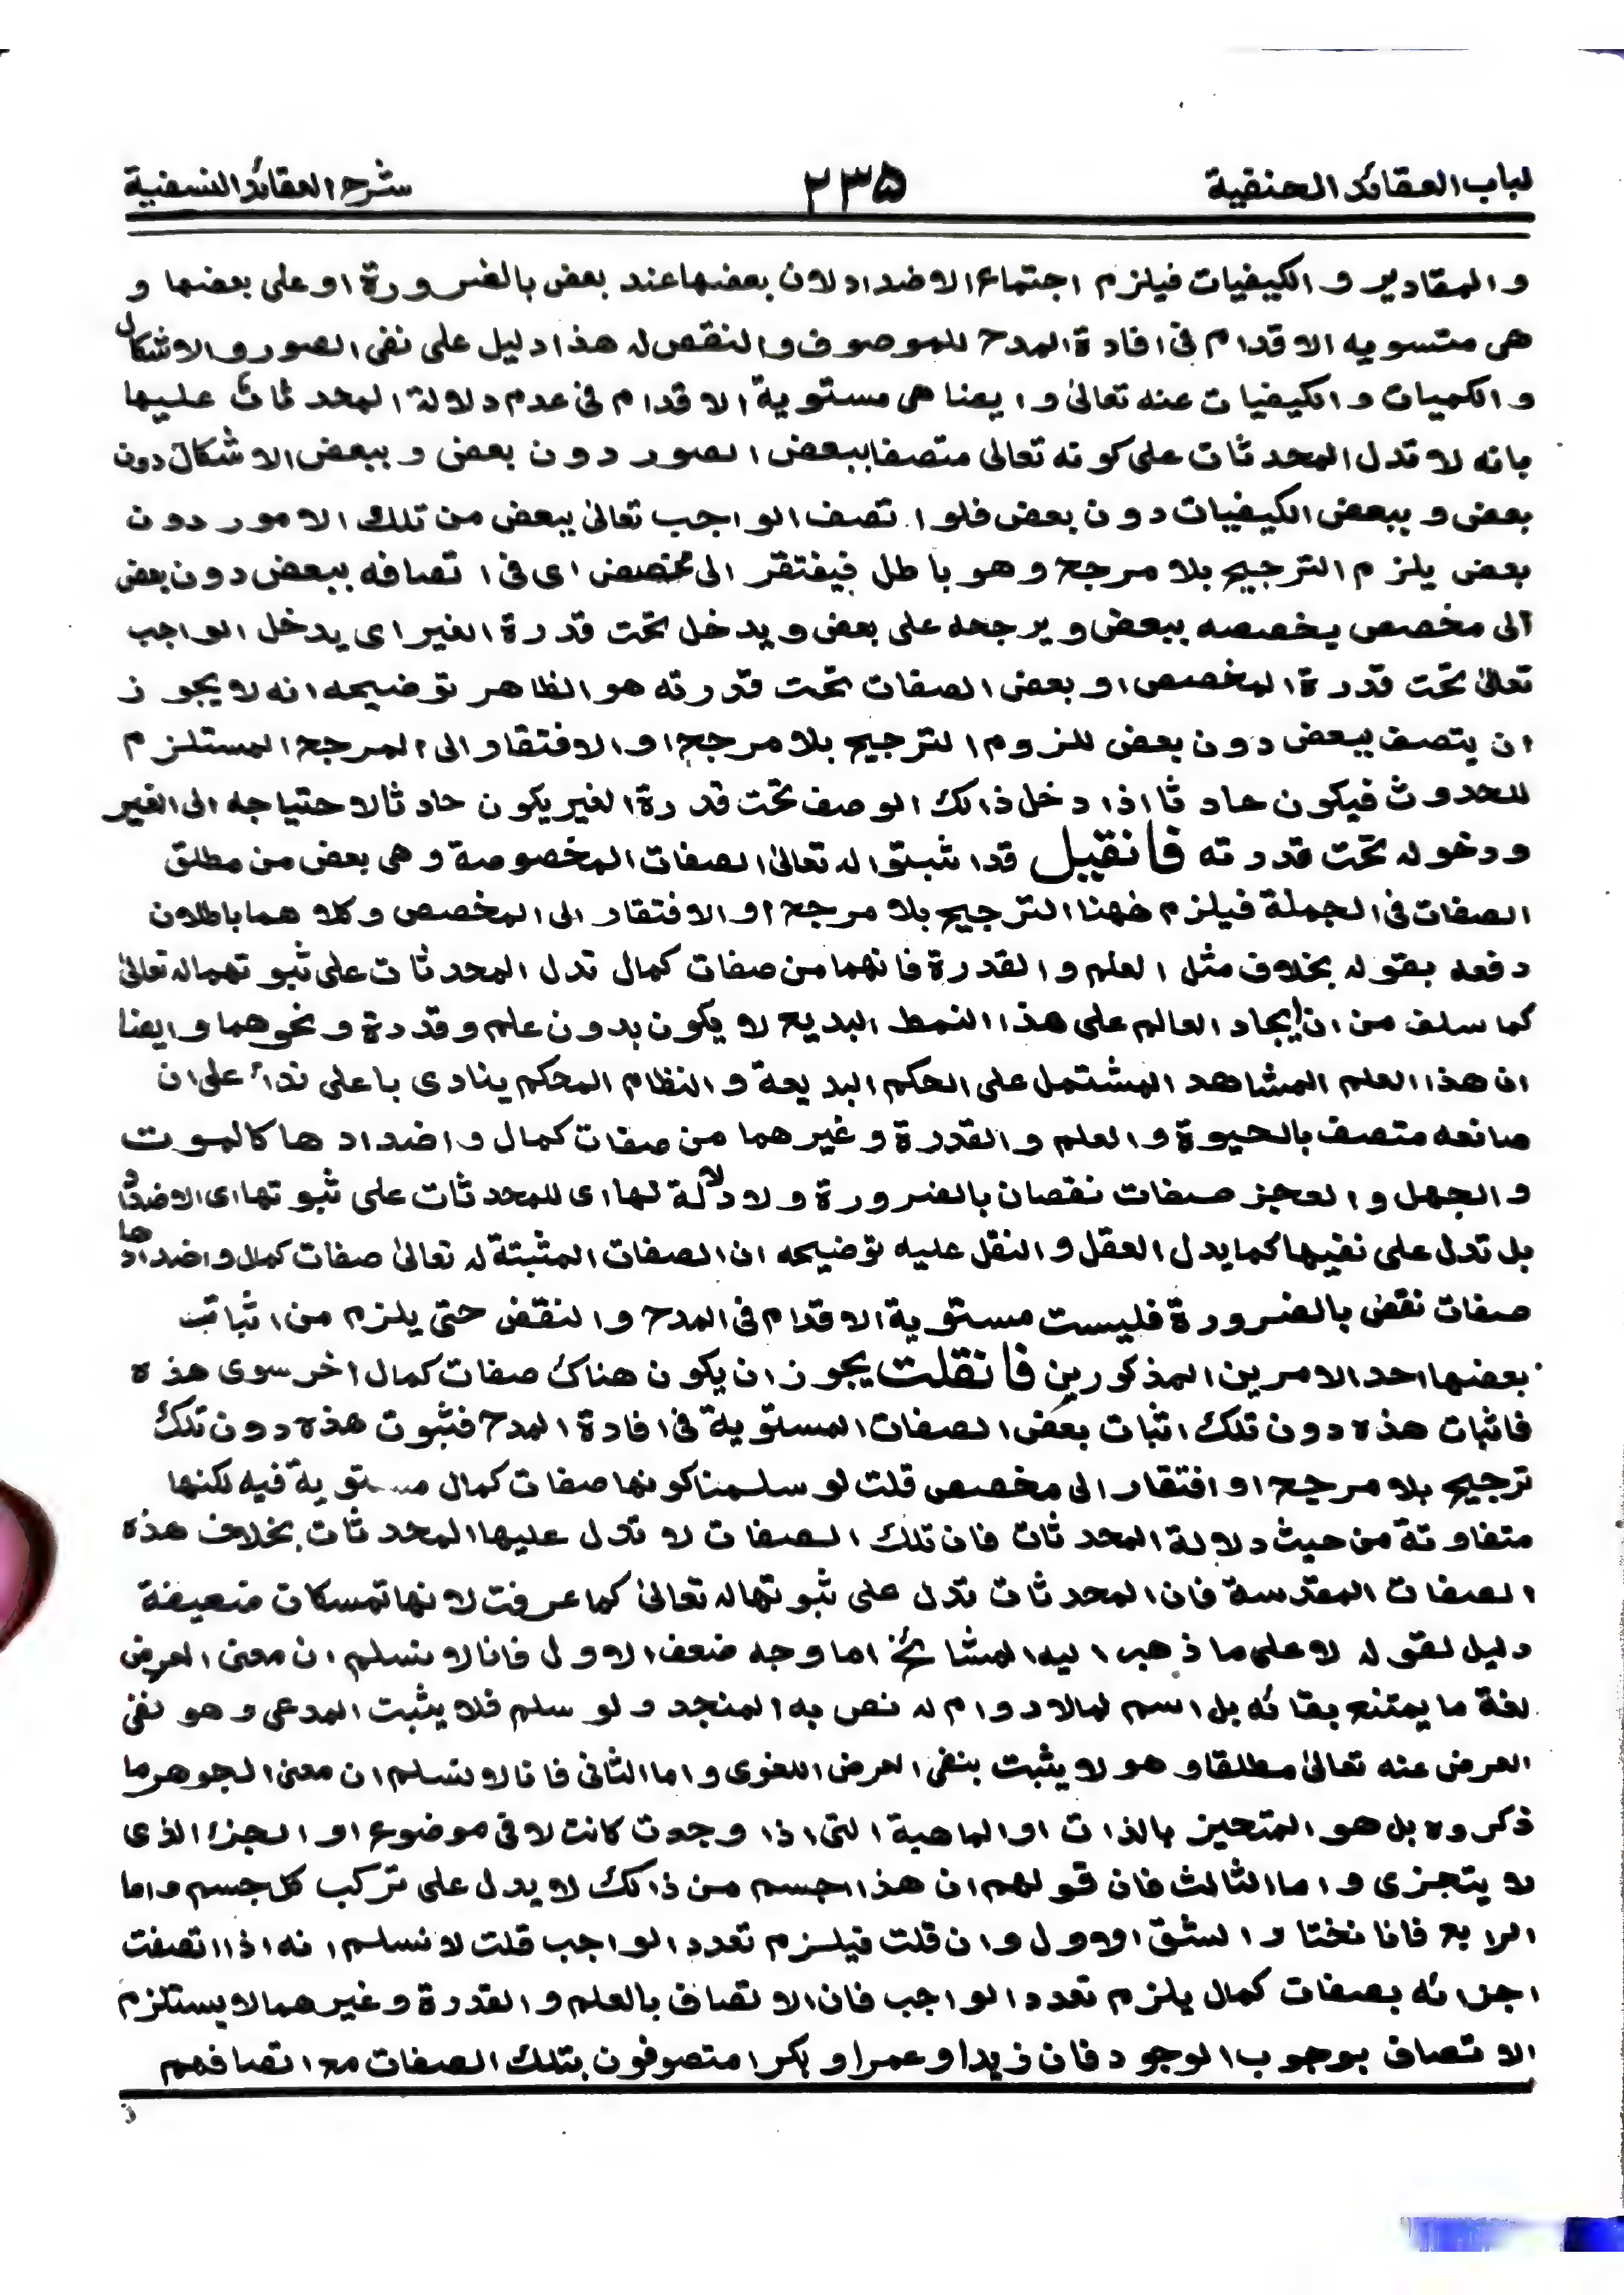 لباب العقائد الحنفية ٢٣٥ شرح العقائد النسفية
و المقادير و الكيفيات فيلزم اجتماع الاضداد لان بعضها عند بعض بالضرورة او على بعضها و
هى متسويه الاقدام فى افادة المدح للموصوف و النقص له هذا دليل على نفى الصور و الاشكال
و الكميات و الكيفيات عنه تعالىٰ و ايضا هى مستوية الاقدام فى عدم دلالة المحدثات عليها
بانه لا تدل المحدثات على كونه تعالى متصفا ببعض الصور دون بعض و ببعض الاشكال دون
بعض و ببعض الكيفيات دون بعض فلو اتصف الواجب تعالىٰ ببعض من تلك الامور دون
بعض يلزم الترجيح بلا مرجح و هو باطل فيفتقر الى مخصص اى فى اتصافه ببعض دون بعض
الى مخصص يخصصه ببعض و يرجحه على بعض و يدخل تحت قدرة الغير اى يدخل الواجب
تعالىٰ تحت قدرة المخصص او بعض الصفات تحت قدرته هو الظاهر توضيحه انه لا يجوز
ان يتصف ببعض دون بعض للزوم الترجيح بلا مرجح او الافتقار الى المرجح المستلزم
للحدوث فيكون حادثا اذا دخل ذالك الوصف تحت قدرة الغير يكون حادثا لاحتياجه الى الغير
و دخوله تحت قدرته فان قيل قد اثبتوا له تعالىٰ الصفات المخصوصة و هى بعض من مطلق
الصفات فى الجملة فيلزم ههنا الترجيح بلا مرجح او الافتقار الى المخصص و كلاهما باطلان
دفعه بقوله بخلاف مثل العلم و القدرة فانهما من صفات كمال تدل المحدثات على ثبوتهما له تعالىٰ
كما سلف من ان ايجاد العالم على هذا النمط البديع لا يكون بدون علم و قدرة و نحوهما و ايضا
ان هذا العلم المشاهد المشتمل على الحكم البديعة و النظام المحكم ينادى باعلى نداء على ان
صانعه متصف بالحيوة و العلم و القدرة و غيرهما من صفات كمال و اضدادها كالموت
و الجهل و العجز صفات نقصان بالضرورة و لا دلالة لها اى للمحدثات على ثبوتها اى الاضداد
بل تدل على نفيها كما يدل العقل و النقل عليه توضيحه ان الصفات المثبتة له تعالىٰ صفات كمال و اضدادها
صفات نقض بالضرورة فليست مستوية الاقدام فى المدح و النقض حتى يلزم من اثبات
بعضها احد الامرين المذكورين فان قلت يجوز ان يكون هناك صفات كمال اخر سوى هذه
فاثبات هذه دون تلك اثبات بعض الصفات المستوية فى افادة المدح فثبوت هذه دون تلك
ترجيح بلا مرجح او افتقار الى مخصص قلت لو سلمنا كونها صفات كمال مستوية فيه لكنها
متفاوتة من حيث دلالة المحدثات فان تلك الصفات لا تدل عليها المحدثات بخلاف هذه
الصفات المقدسة فان المحدثات تدل على ثبوتها له تعالىٰ كما عرفت لانها تمسكات ضعيفة
دليل لقوله لا على ما ذهب اليه المشائخ اما وجه ضعف الاول فانا لا نسلم ان معنى العرض
لغة ما يمتنع بقائه بل اسم لما لا دوام له نص به المنجد و لو سلم فلا يثبت المدعى و هو نفى
العرض عنه تعالىٰ مطلقا و هو لا يثبت بنفى العرض اللغوى و اما الثانى فانا لا نسلم ان معنى الجوهر ما
ذكروه بل هو المتحيز بالذات او الماهية التى اذا وجدت كانت لا فى موضوع او الجزء الذى
لا يتجزى و اما الثالث فان قولهم ان هذا اجسم من ذالك لا يدل على تركب كل جسم و اما
الرابع فانا نختار الشق الاول و ان قلت فيلزم تعدد الواجب قلت لا نسلم انه اذا اتصفت
اجزائه بصفات كمال يلزم تعدد الواجب فان الاتصاف بالعلم و القدرة و غيرهما لا يستلزم
الاتصاف بوجوب الوجود فان زيدا و عمرا و بكرا متصوفون بتلك الصفات مع اتصافهم